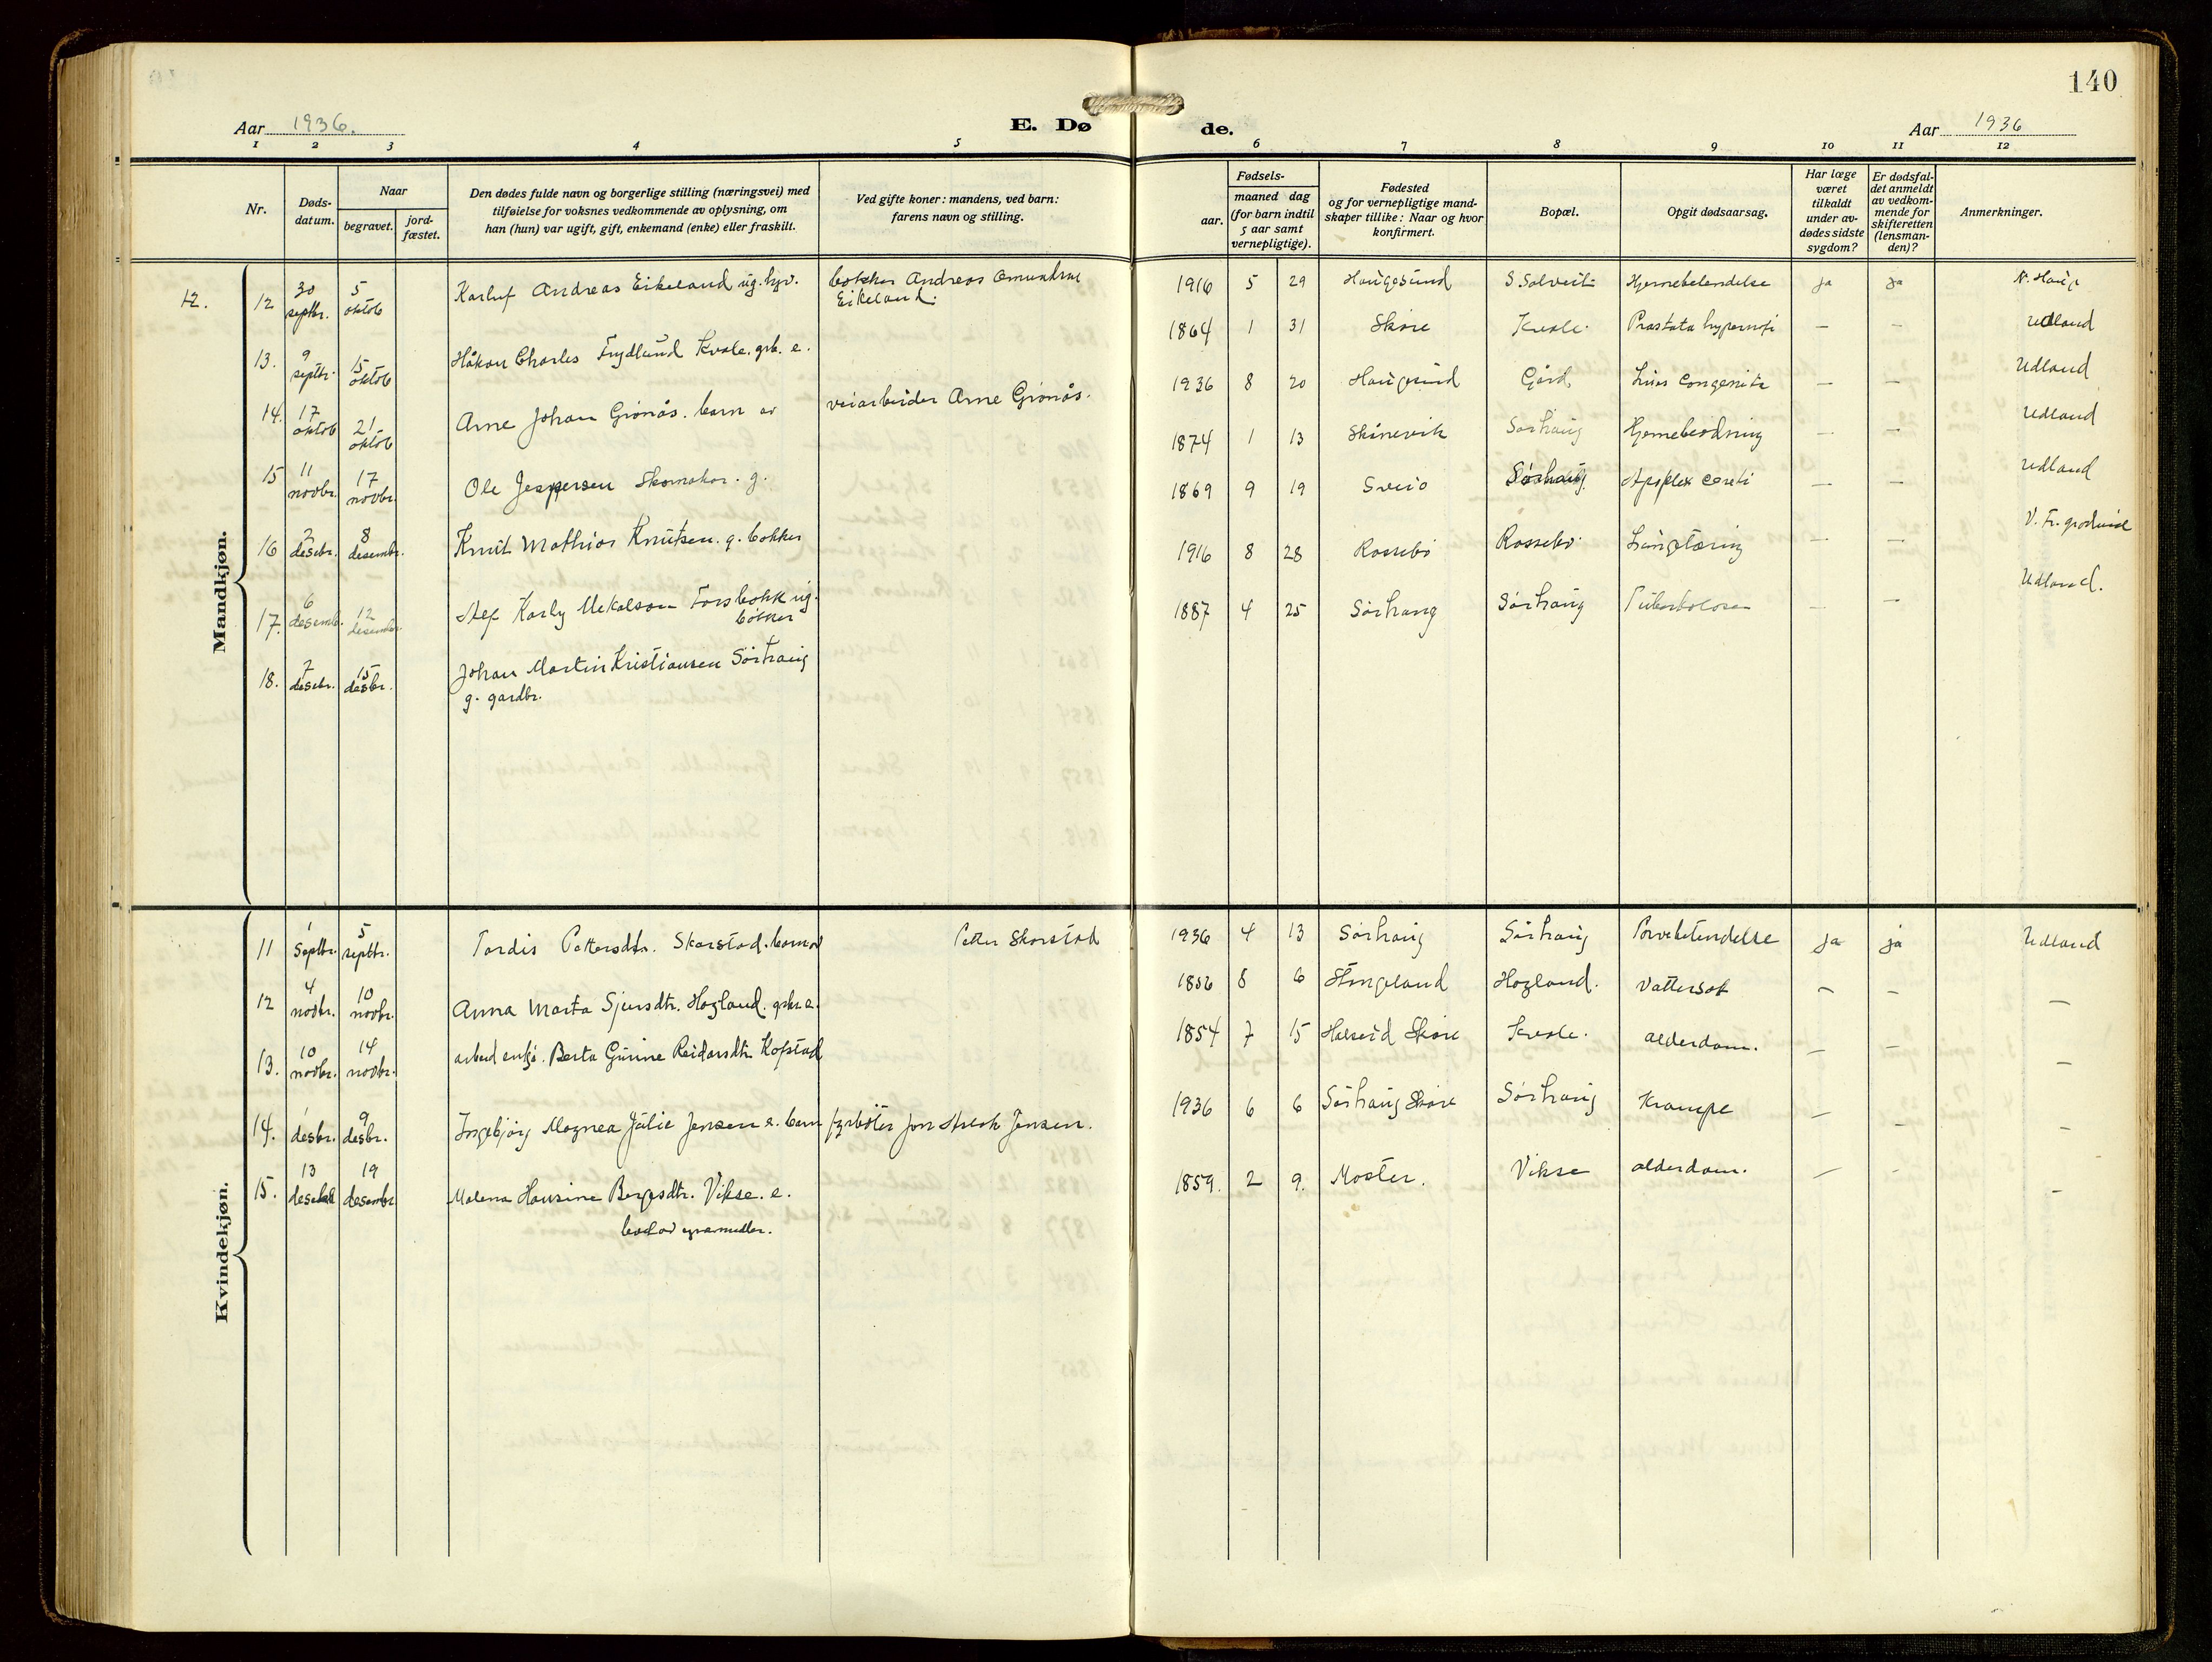 140
Aar 1936.
E. Dø
de.
Aar 1936
1 2 3 4 5 6 7 8 9 10 11 12
Nr.
Døds-
datum.
Naar
begravet.
jord-
fæstet.
Den dødes fulde navn og borgerlige stilling (næringsvei) med
tilføielse for voksnes vedkommende av oplysning, om
han (hun) var ugift, gift, enkemand (enke) eller fraskilt.
Ved gifte koner: mandens, ved barn:
farens navn og stilling.
Fødsels-
aar.
maaned dag
(for barn indtil
5 aar samt
vernepligtige).
Fødested
og for vernepligtige mand-
skaper tillike: Naar og hvor
konfirmert.
Bopæl.
Opgit dødsaarsag.
Har læge
været
tilkaldt
under av-
dødes sidste
sygdom?
Er dødsfal-
det anmeldt
av vedkom-
mende for
skifteretten
(lensman-
den)?
Anmerkninger.
Mandkjøn.
12. 12 30 septbr. 5 oktob Karluf Andreas Eikeland ug. bøkker Andreas Omundsen Eikeland. 1916 5 29 Haugesund Hjernebetendelse ja ja N. Haug
13. 9 septbr. 15 oktob Håkon Charles Frydlund Kvale. e. 1864 1 31 Skåre Kvale. Prostata — — Udland
14. 17 oktob 21 oktob Arne Johan Grønås. barn av veiarbeider Arne Grønås. 1936 8 20 Haugesund Gård Lues Congenita — — Udland
15 11 novbr. 17 novbr. Ole Jespersen Skomaker. g. 1874 1 13 Skånevik Sørhaug Hjerneblødning — — Udland
16 2 desbr. 8 desembr. Knut Mathias Knutsen. g. bøkker 1869 9 19 Sveio Sørhaug Apoplex — — Udland
17. 6 desemb. 12 desembr. Karly Mekalson ug. bøkker 1916 8 28 Rossebø Rossebø Lungetæring — — V. Fr.
18. 7 desbr. 15 desbr. Johan Martin Kristiansen Sørhaug
g. gardbr. 1887 4 25 Sørhaug Sørhaug Tuberkolose — — Udland.
Kvindekjøn.
11 1 Septbr. 5 septbr. Tordis Pettersdtr. Skarstad. barn av Petter Skarstad 1936 4 13 Sørhaug Sørhaug ja ja Udland
12 4 novbr. 10 novbr. Anna Marta Sjursdtr. Hagland. e. 1856 8 6 Stangeland Hagland. Vattersot — — —
13. 10 novbr. 14 novbr. arbeid enke. Berta Gurine Reidarsdtr Kofstad 1854 7 15 Skåre Kvale. alderdom. — — —
14. 1 desbr. 9 desbr. Ingebjørg Magnea Julie Jensen e. barn fyrbøter Jensen. 1936 6 6 Sørhaug Skåre Sørhaug Krampe — — —
15. 13 19 desembr Malena Hansine Bergsdtr. Vikse. e. 1859. 2 9. Moster. Vikse alderdom. — — —